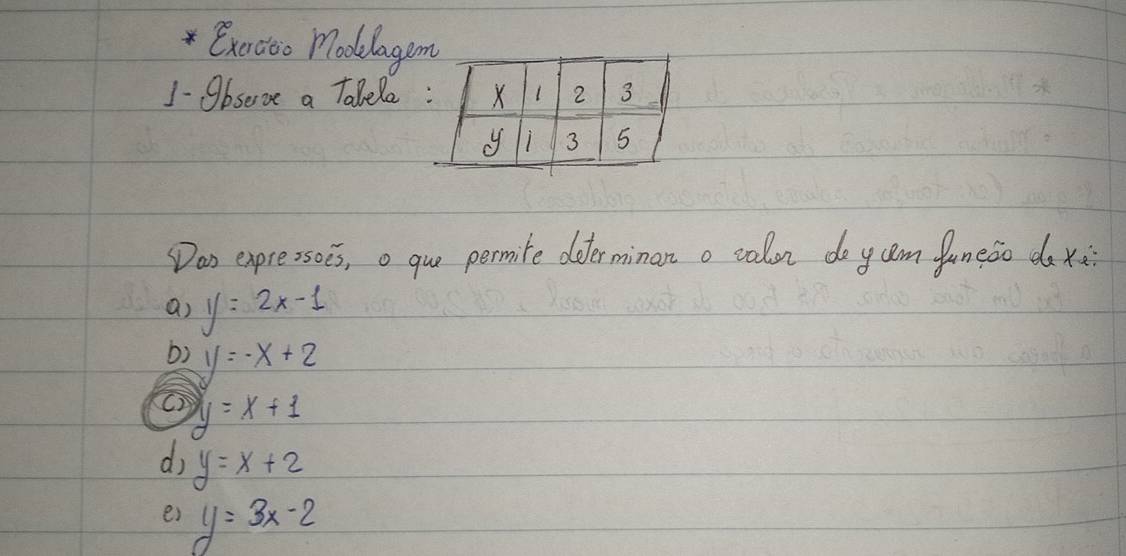 * Exercício Modelagem
1- Observe a Tabela :
X 1 2 3
y 1 3 5
Das expressões, o que permite determinar o valor de y em função de x é:
a) y = 2x - 1
b) y = -x + 2
c) y = x + 1
d) y = x + 2
e) y = 3x - 2